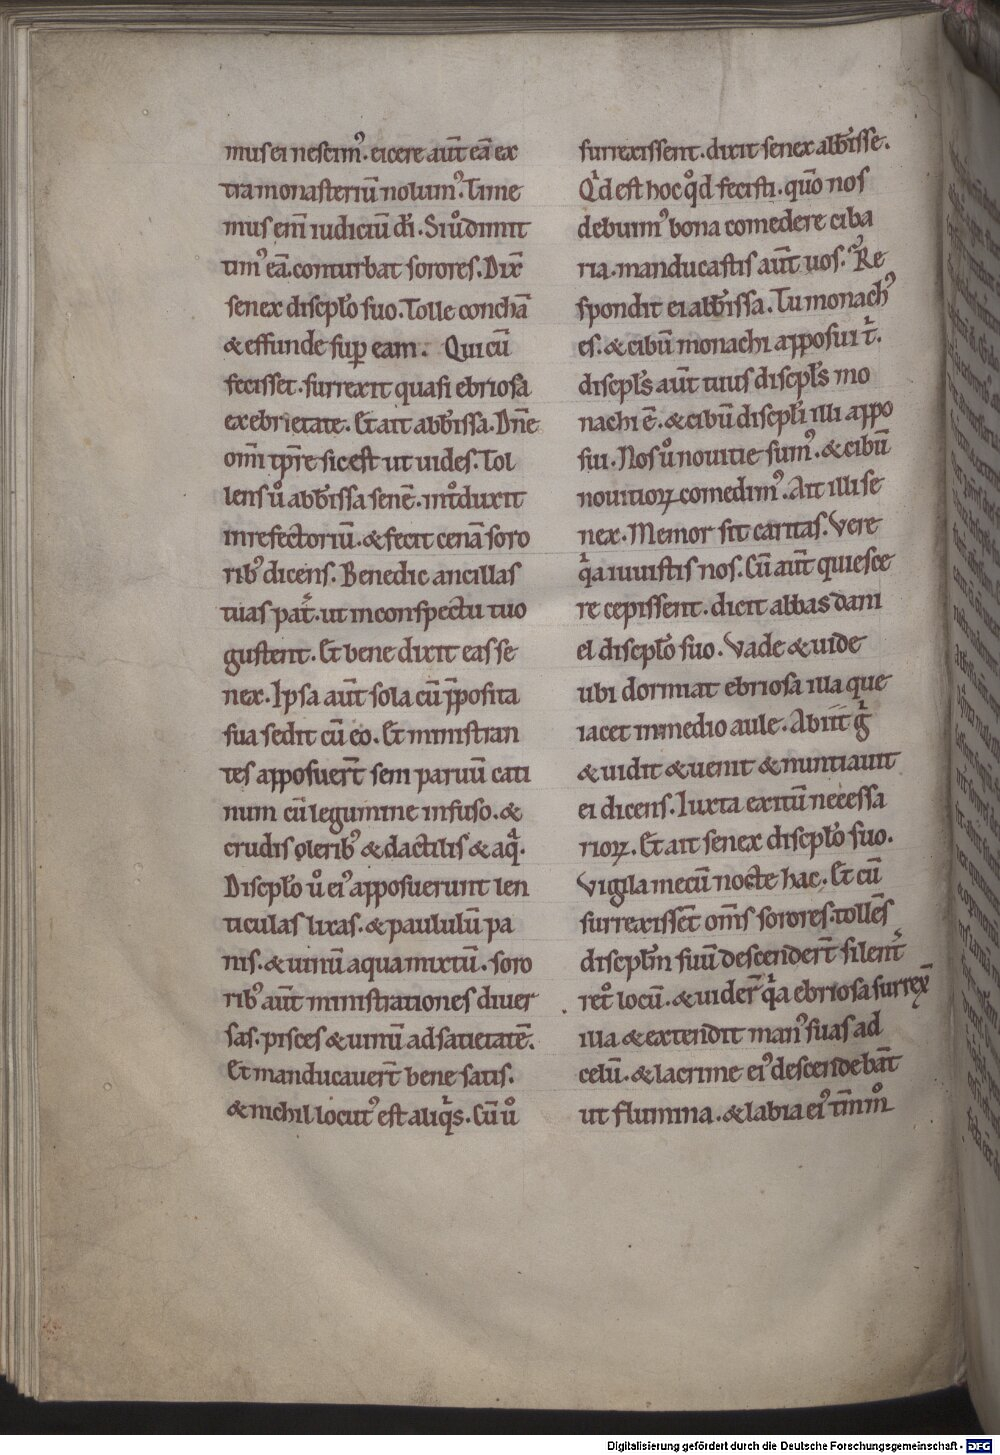 mus ei nescim᾽. eicere aut̄ eā ex
tra monasteriū nolum᾽. Time
mus em̄ iudiciū dī. Si uͦ dimit
tim᾽ eā. conturbat sorores. Dix̄
senex discipl̄o suo. Tolle conchā
& effunde suꝑ eam. Qui cū
fecisset. surrexit quasi ebriosa
ex ebrietate. Et ait abbīssa. Dn̄e
om̄i tp̄re sic est ut uides. Tol
lens uͦ abbīssa senē. intͦduxit
in refectoriū. & fecit cenā soro
rib᾽ dicens. Benedic ancillas
tuas pat̄. ut in conspectu tuo
gustent. Et bene dixit eas se
nex. Ipsa aut̄ sola cū p̄posita
sua sedit cū eo. Et ministran
tes apposuer̄t seni paruū cati
num cū legumine infuso. &
crudis olerib᾽ & dactilis & aqͣ.
Discipl̄o uͦ ei᾽ apposuerunt len
ticulas lixas. & paululū pa
nis. & uinū aqua mixtū. soro
rib᾽ aut̄ ministrationes diuer
sas. pisces & uinū ad satietatē.
Et manducauer̄t bene satis.
& nichil locut᾽ est aliqͥs. Cū uͦ
surrexissent. dixit senex abbīsse.
Qͥd est hoc qͦd fecisti. quō nos
debuim᾽ bona comedere ciba
ria. manducastis aut̄ uos. Re
spondit ei abbīssa. Tu monach᾽
es. & cibū monachi apposui tͥ.
discipl̄s aut̄ tuus discipl̄s mo
nachi ē. & cibū discipl̄i illi appo
sui. Nos uͦ nouitie sum᾽. & cibū
nouitioꝝ comedim᾽. Ait illi se
nex. Memor sit caritas. Vere
qͥa iuuistis nos. Cū aut̄ quiesce
re cepissent. dicit abbas dani
el discipl̄o suo. Vade & uide
ubi dormiat ebriosa illa que
iacet in medio aule. Abiit gͥ
& uidit & uenit & nuntiauit
ei dicens. Iuxta exitū necessa
rioꝝ. Et ait senex discipl̄o suo.
Vigila mecū nocte hac. Et cū
surrexissēt om̄s sorores. tollēs
discipl̄m suū descender̄t silent̄
retͦ locū. & uider̄ qͥa ebriosa surrex̄
illa & extendit man᾽ suas ad
celū. & lacrime ei᾽ descendebāt
ut flumina. & labia ei᾽ tm̄mͦ
Digitalisierung gefördert durch die Deutsche Forschungsgemeinschaft - DFG